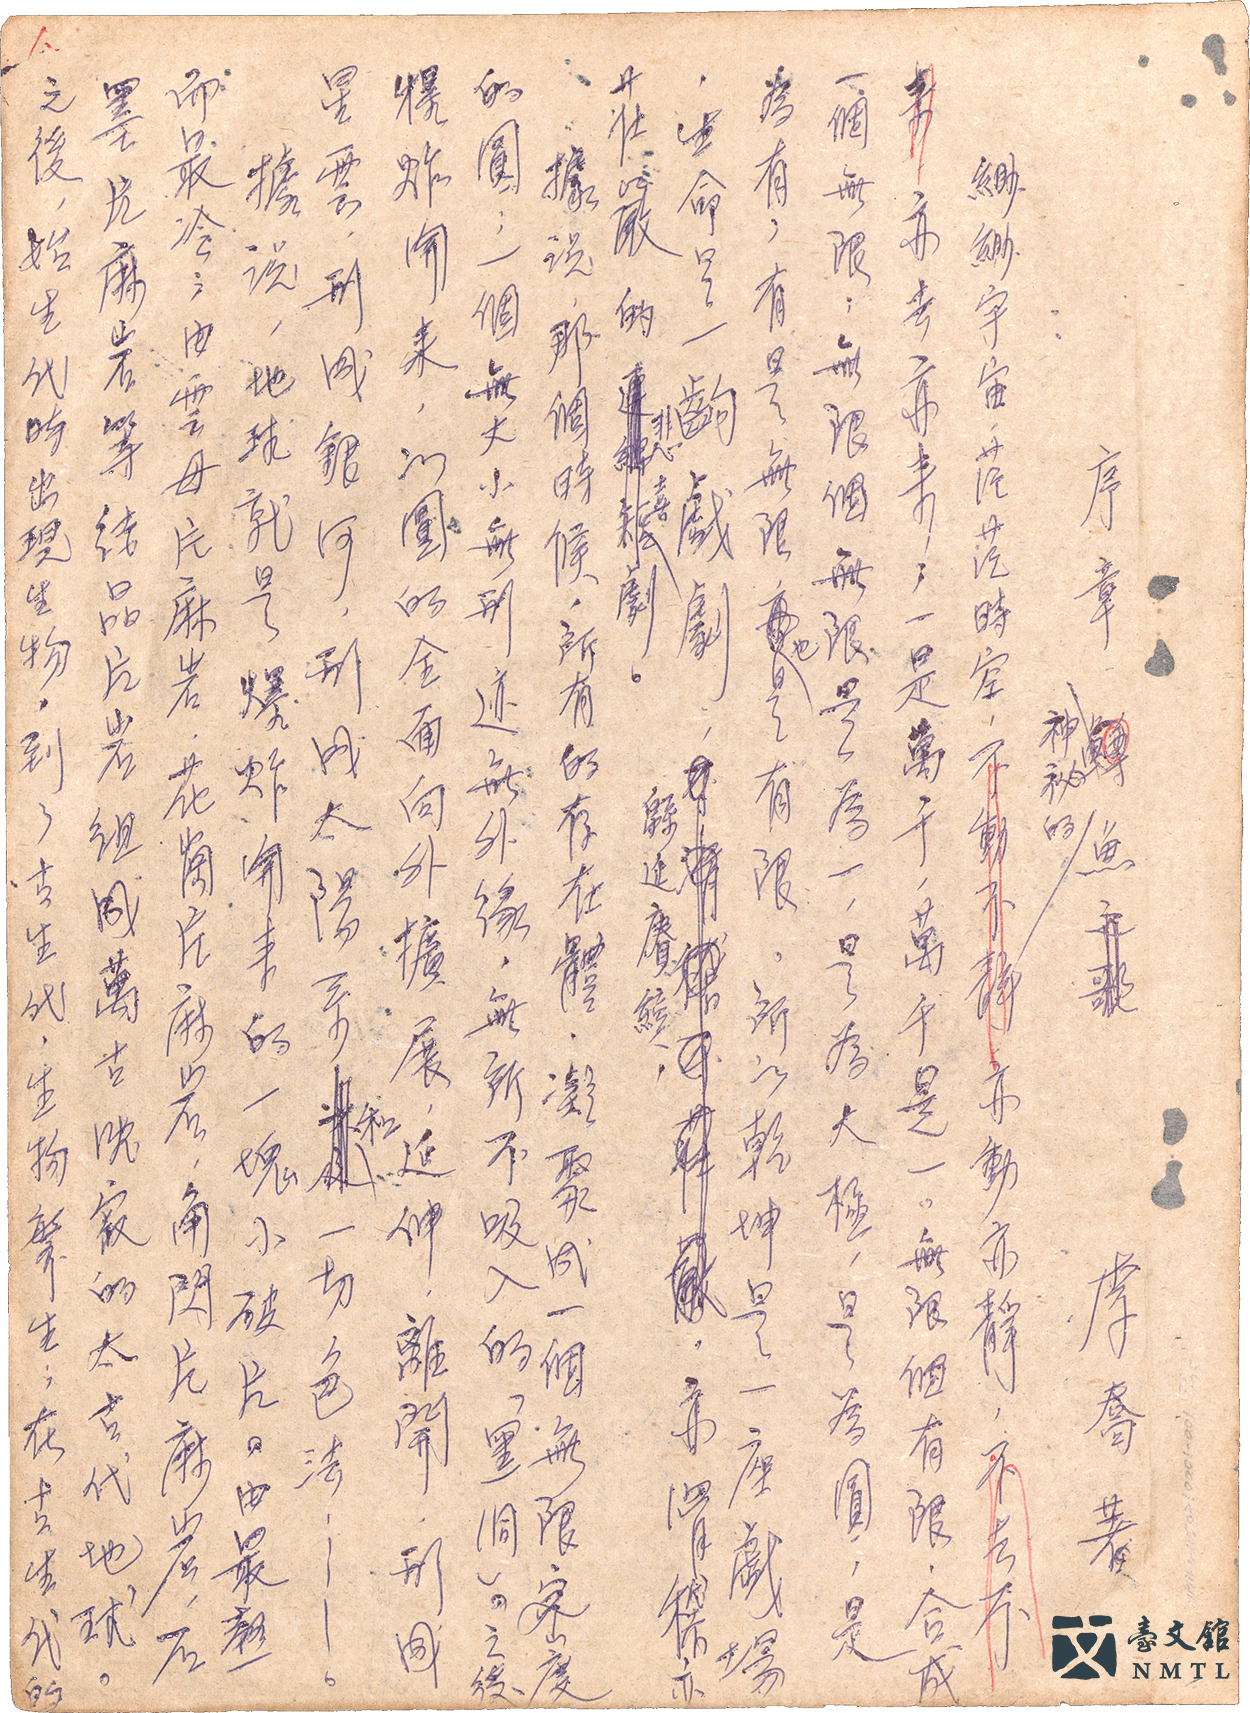 序章 神祕的魚 李喬著
緲緲宇宙，茫茫時空，不動不靜亦動亦靜，不去不
來亦去亦來；一是萬千，萬千是一。無限個有限，合成
一個無限；無限個無限是為一，是為大極，是為圓；是
為有；有是無限也是有限。所以乾坤是一座戲場
，生命是一齣戲劇，緜延賡續，亦滑稽亦
莊嚴的悲喜劇。
據說，那個時候，所有的存在體，凝聚成一個無限密度
的圓；一個無大小無形迹無外緣，無所不吸入的「黑洞」。之後
爆炸開來，以圓的全面向外擴展，延伸，離開，形成
星雲，形成銀河，形成太陽系和一切色法——。
據說，地球就是爆炸開來的一塊小破片。由最熱
而最冷；由雲母片麻岩，花崗片麻岩，角閃片麻岩，石
墨片麻岩等結晶片岩組成萬古沈寂的太古代地球。
之後，始生代時出現生物，到了古生代，生物繁生；在古生代的
臺文館
NMTL